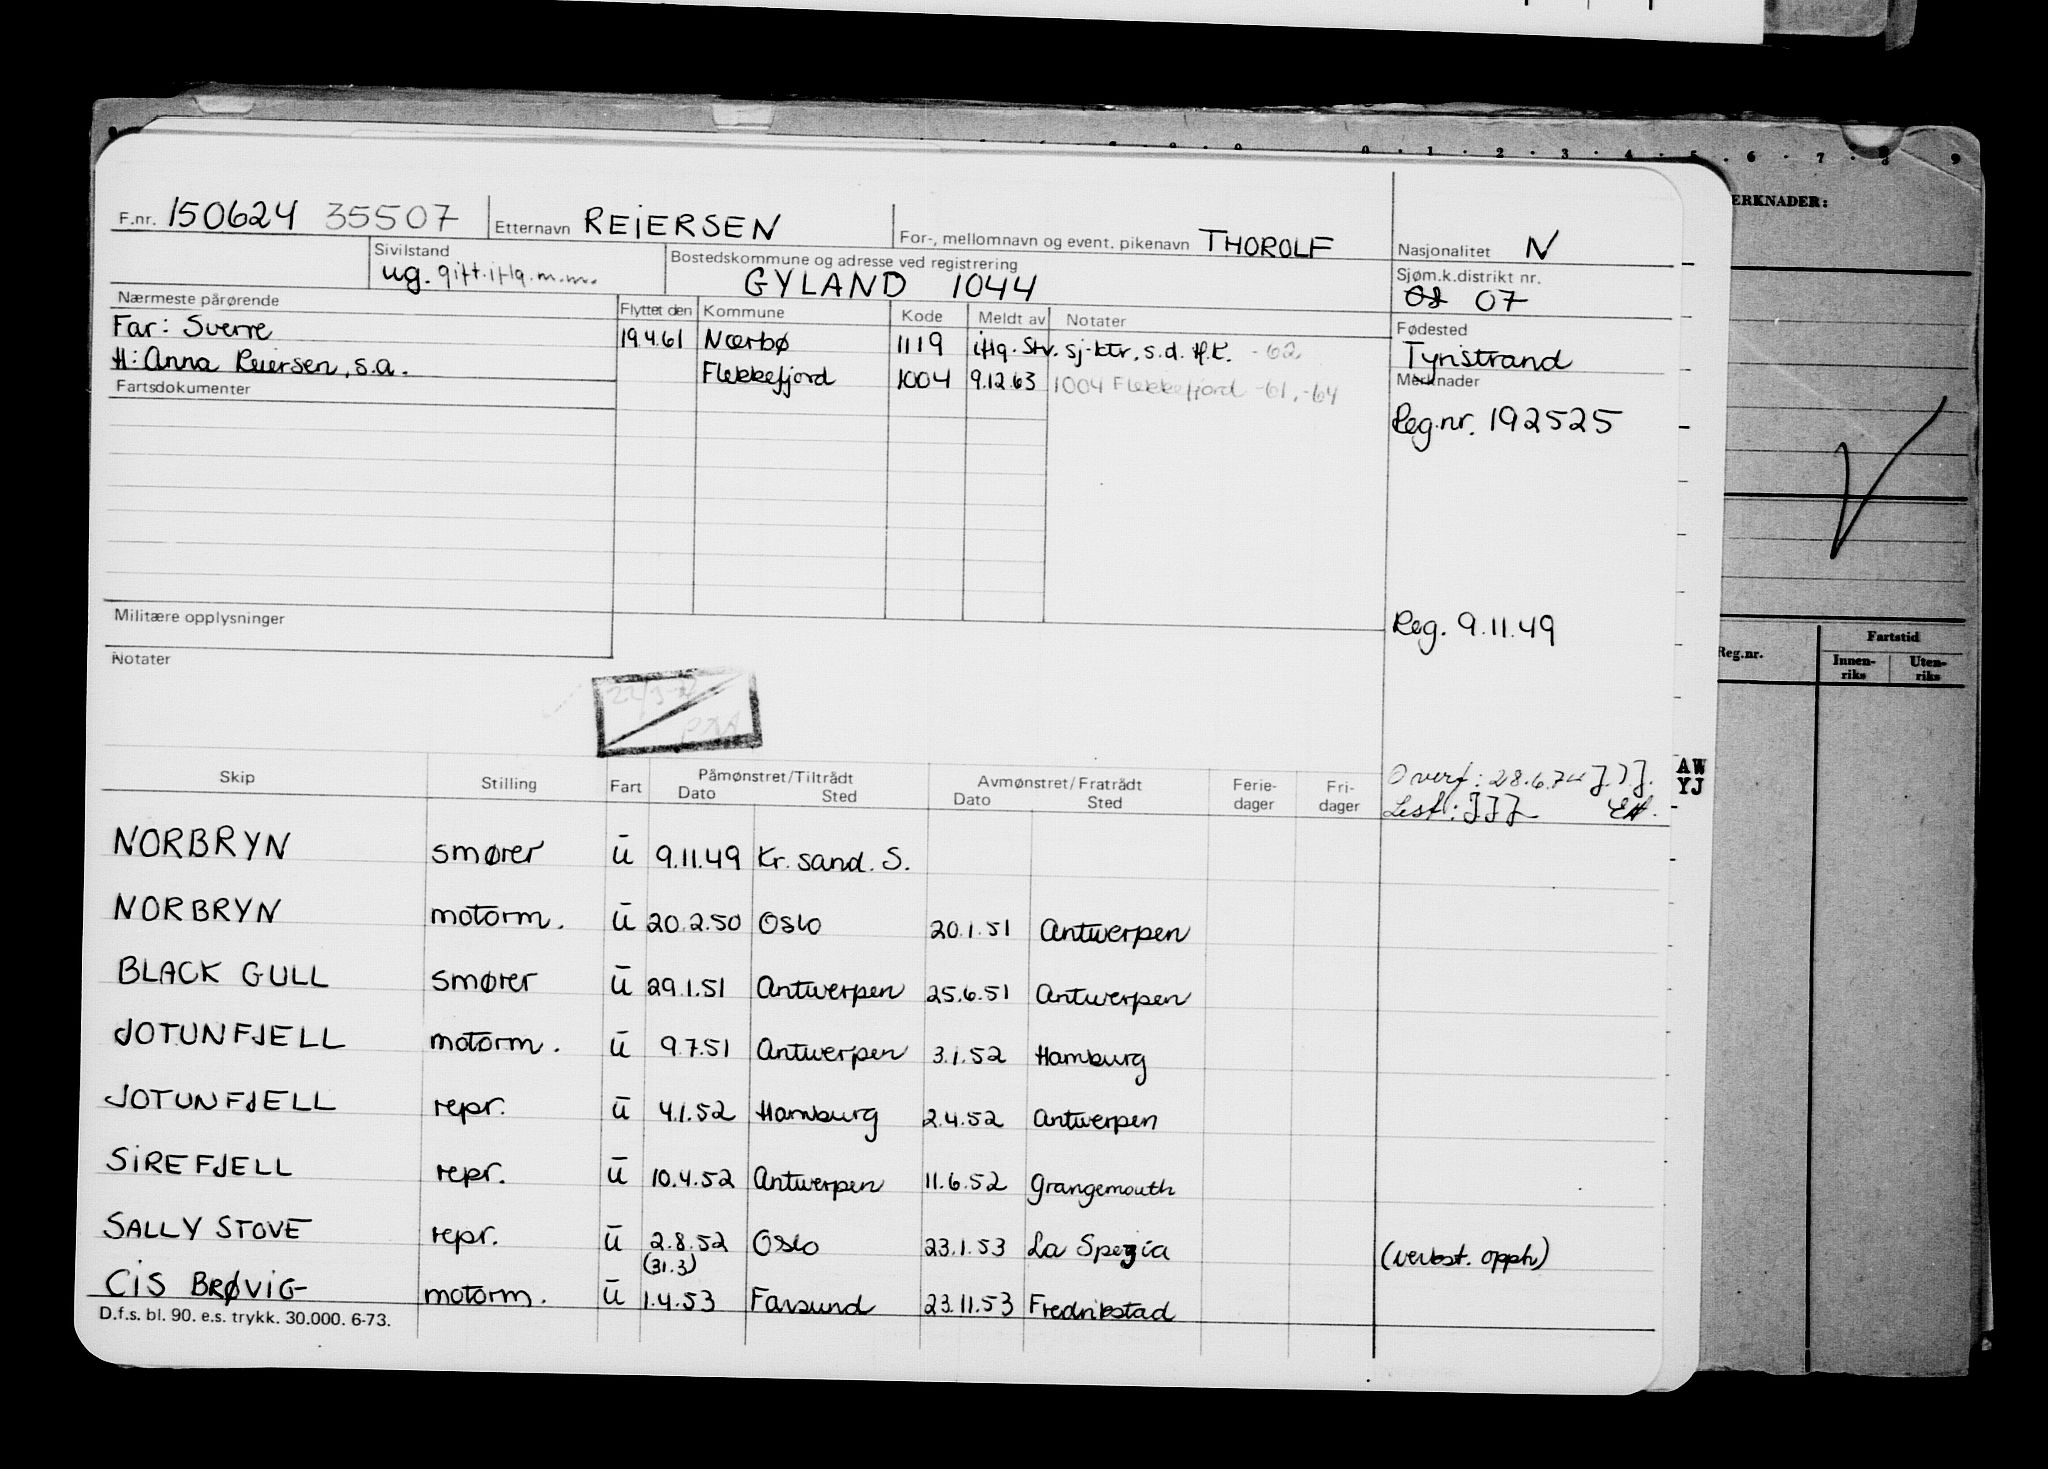 0 · 1 · 2 · 3 · 4 · 5 · 6 · 7 · 8 · 9
MERKNADER:
F.nr. 150624 35507 Etternavn REIERSEN For-, mellomnavn og event. pikenavn THOROLF Nasjonalitet N
Sivilstand ug. gift.iflg.m.m. Bostedskommune og adresse ved registrering GYLAND 1044 Sjøm.k.distrikt nr. 07
Nærmeste pårørende Flyttet den Kommune Kode Meldt av Notater Fødested
Far: Sverre 19.4.61 Nærbø 1119 iflg. Str. sj-ktr. s.d. H.K. -62 Tyristrand
H: Anna Reiersen, s.a. Flekkefjord 1004 9.12.63 1004 Flekkefjord -61, -64 Merknader
Fartsdokumenter
Reg.nr. 192525
Militære opplysninger
Reg. 9.11.49
Notater
Reg.nr. Fartstid
Innen-riks Uten-riks
Skip Stilling Fart Påmønstret/Tiltrådt Avmønstret/Fratrådt Ferie-dager Fri-dager Overf: 28.6.74 J.J.J.
Dato Sted Dato Sted Lest: JJJ EH.
AW
YJ
NORBRYN smører ū 9.11.49 Kr. sand. S.
NORBRYN motorm. ū 20.2.50 Oslo 20.1.51 Antwerpen
BLACK GULL smører ū 29.1.51 Antwerpen 25.6.51 Antwerpen
JOTUNFJELL motorm. ū 9.7.51 Antwerpen 3.1.52 Hamburg
JOTUNFJELL repr. ū 4.1.52 Hamburg 2.4.52 Antwerpen
SIREFJELL repr. ū 10.4.52 Antwerpen 11.6.52 Grangemouth
SALLY STOVE repr. ū 2.8.52 Oslo 23.1.53 La Spezia (verbst. opph)
(31.3)
CIS BRØVIG motorm. ū 1.4.53 Farsund 23.11.53 Fredrikstad
D.f.s. bl. 90. e.s. trykk. 30.000. 6-73.